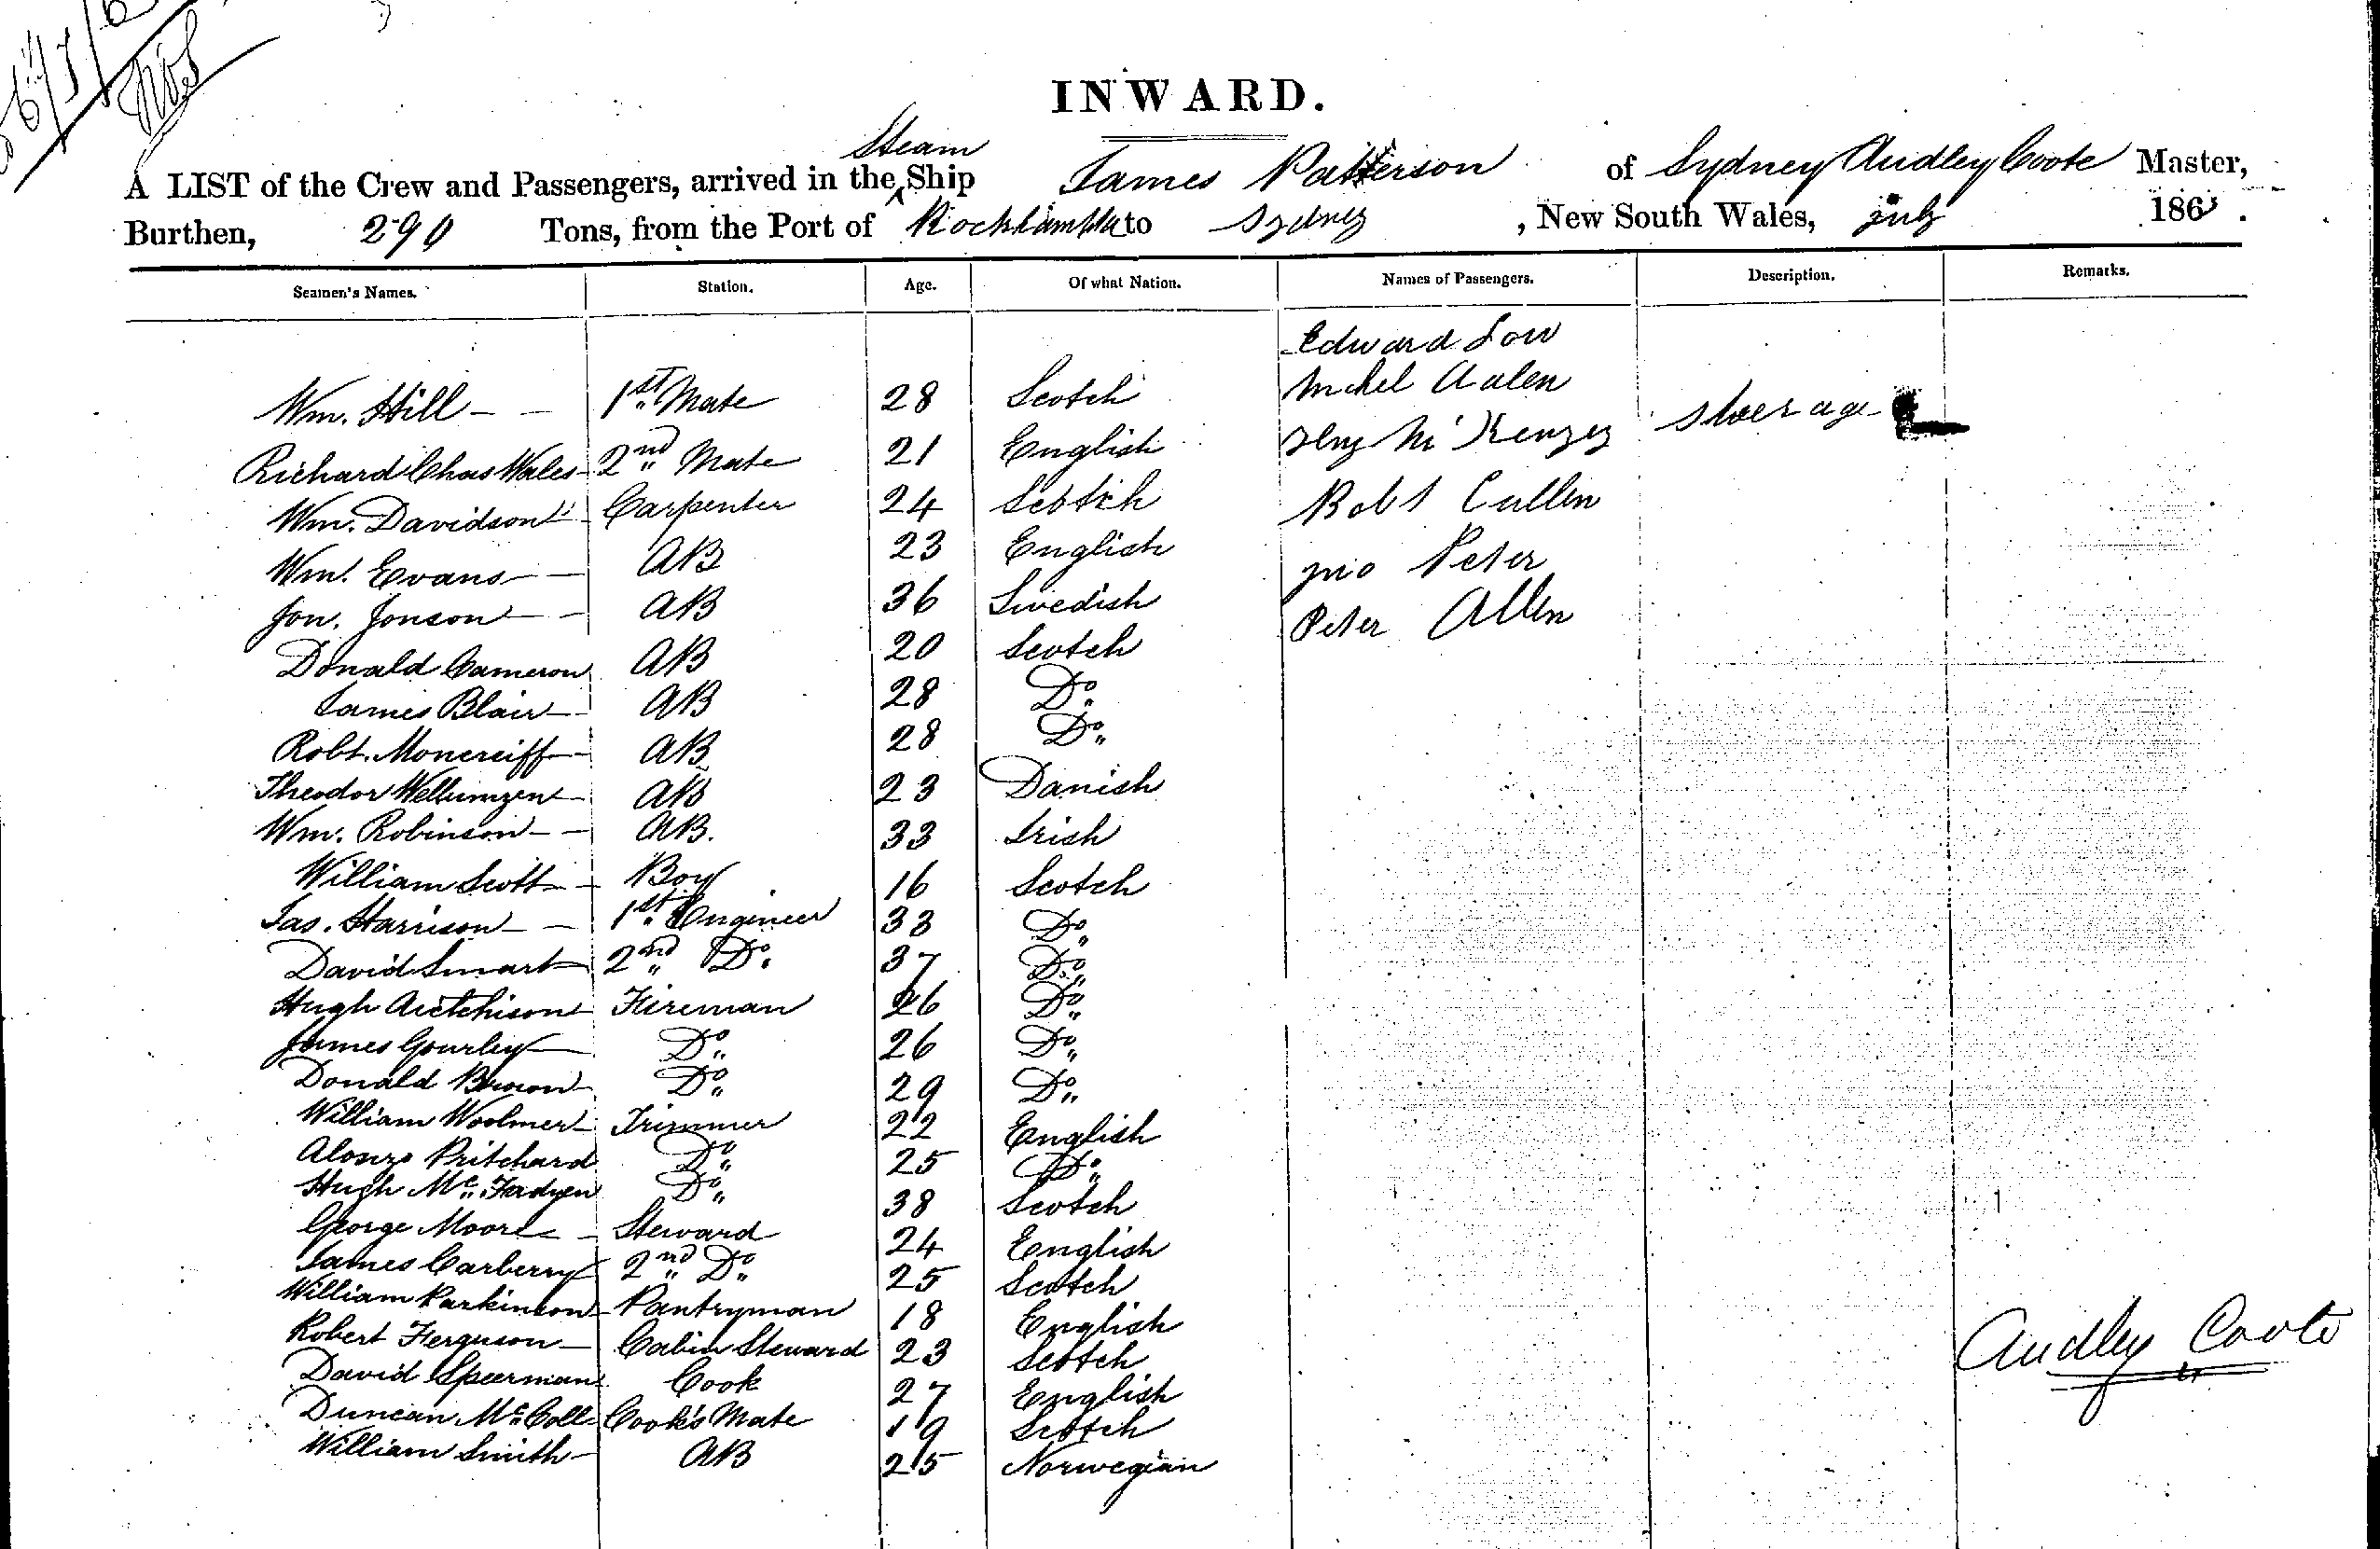 INWARD.
Steam
A LIST of the Crew and Passengers, arrived in the Ship James Patterson of Sydney Audley Coote Master,
Burthen, 290 Tons, from the Port of to Sydney, New South Wales, July 186
Seamen's Names. Station. Age. Of what Nation. Names of Passengers. Description. Remarks.
Edward Low
Wm. Hill 1st Mate 28 Scotch Michel Aalen
Richard Chas Wales 2nd Mate 21 English McKenzey steerage
Wm. Davidson Carpenter 24 Scotch Robt Cullen
Wm. Evans AB 23 English Jno Peter
Jon. Jonson AB 36 Swedish Peter Allen
Donald Cameron AB 20 Scotch
James Blair AB 28 Do.
Robt. Moncreiff AB 28 Do.
Theodor AB 23 Danish
Wm. Robinson AB. 33 Irish
William Scott Boy 16 Scotch
Jas. Harrison 1st Engineer 33 Do.
David Smart 2nd Do. 37 Do.
Hugh Aietchison Fireman 26 Do.
James Gourley Do. 26 Do.
Donald Brown Do. 29 Do.
William Woolmer Trimmer 22 English
Alonzo Pritchard Do. 25 Do.
Hugh Mc.Fadyen Do. 38 Scotch
George Moore Steward 24 English
James Carberry 2nd Do. 25 Scotch
William Parkinson Pantryman 18 English
Robert Ferguson Cabin Steward 23 Scotch
David Speerman Cook 27 English
Duncan Mc.Coll Cook's Mate 19 Scotch
William Smith AB 25 Norwegian
Audley Coote